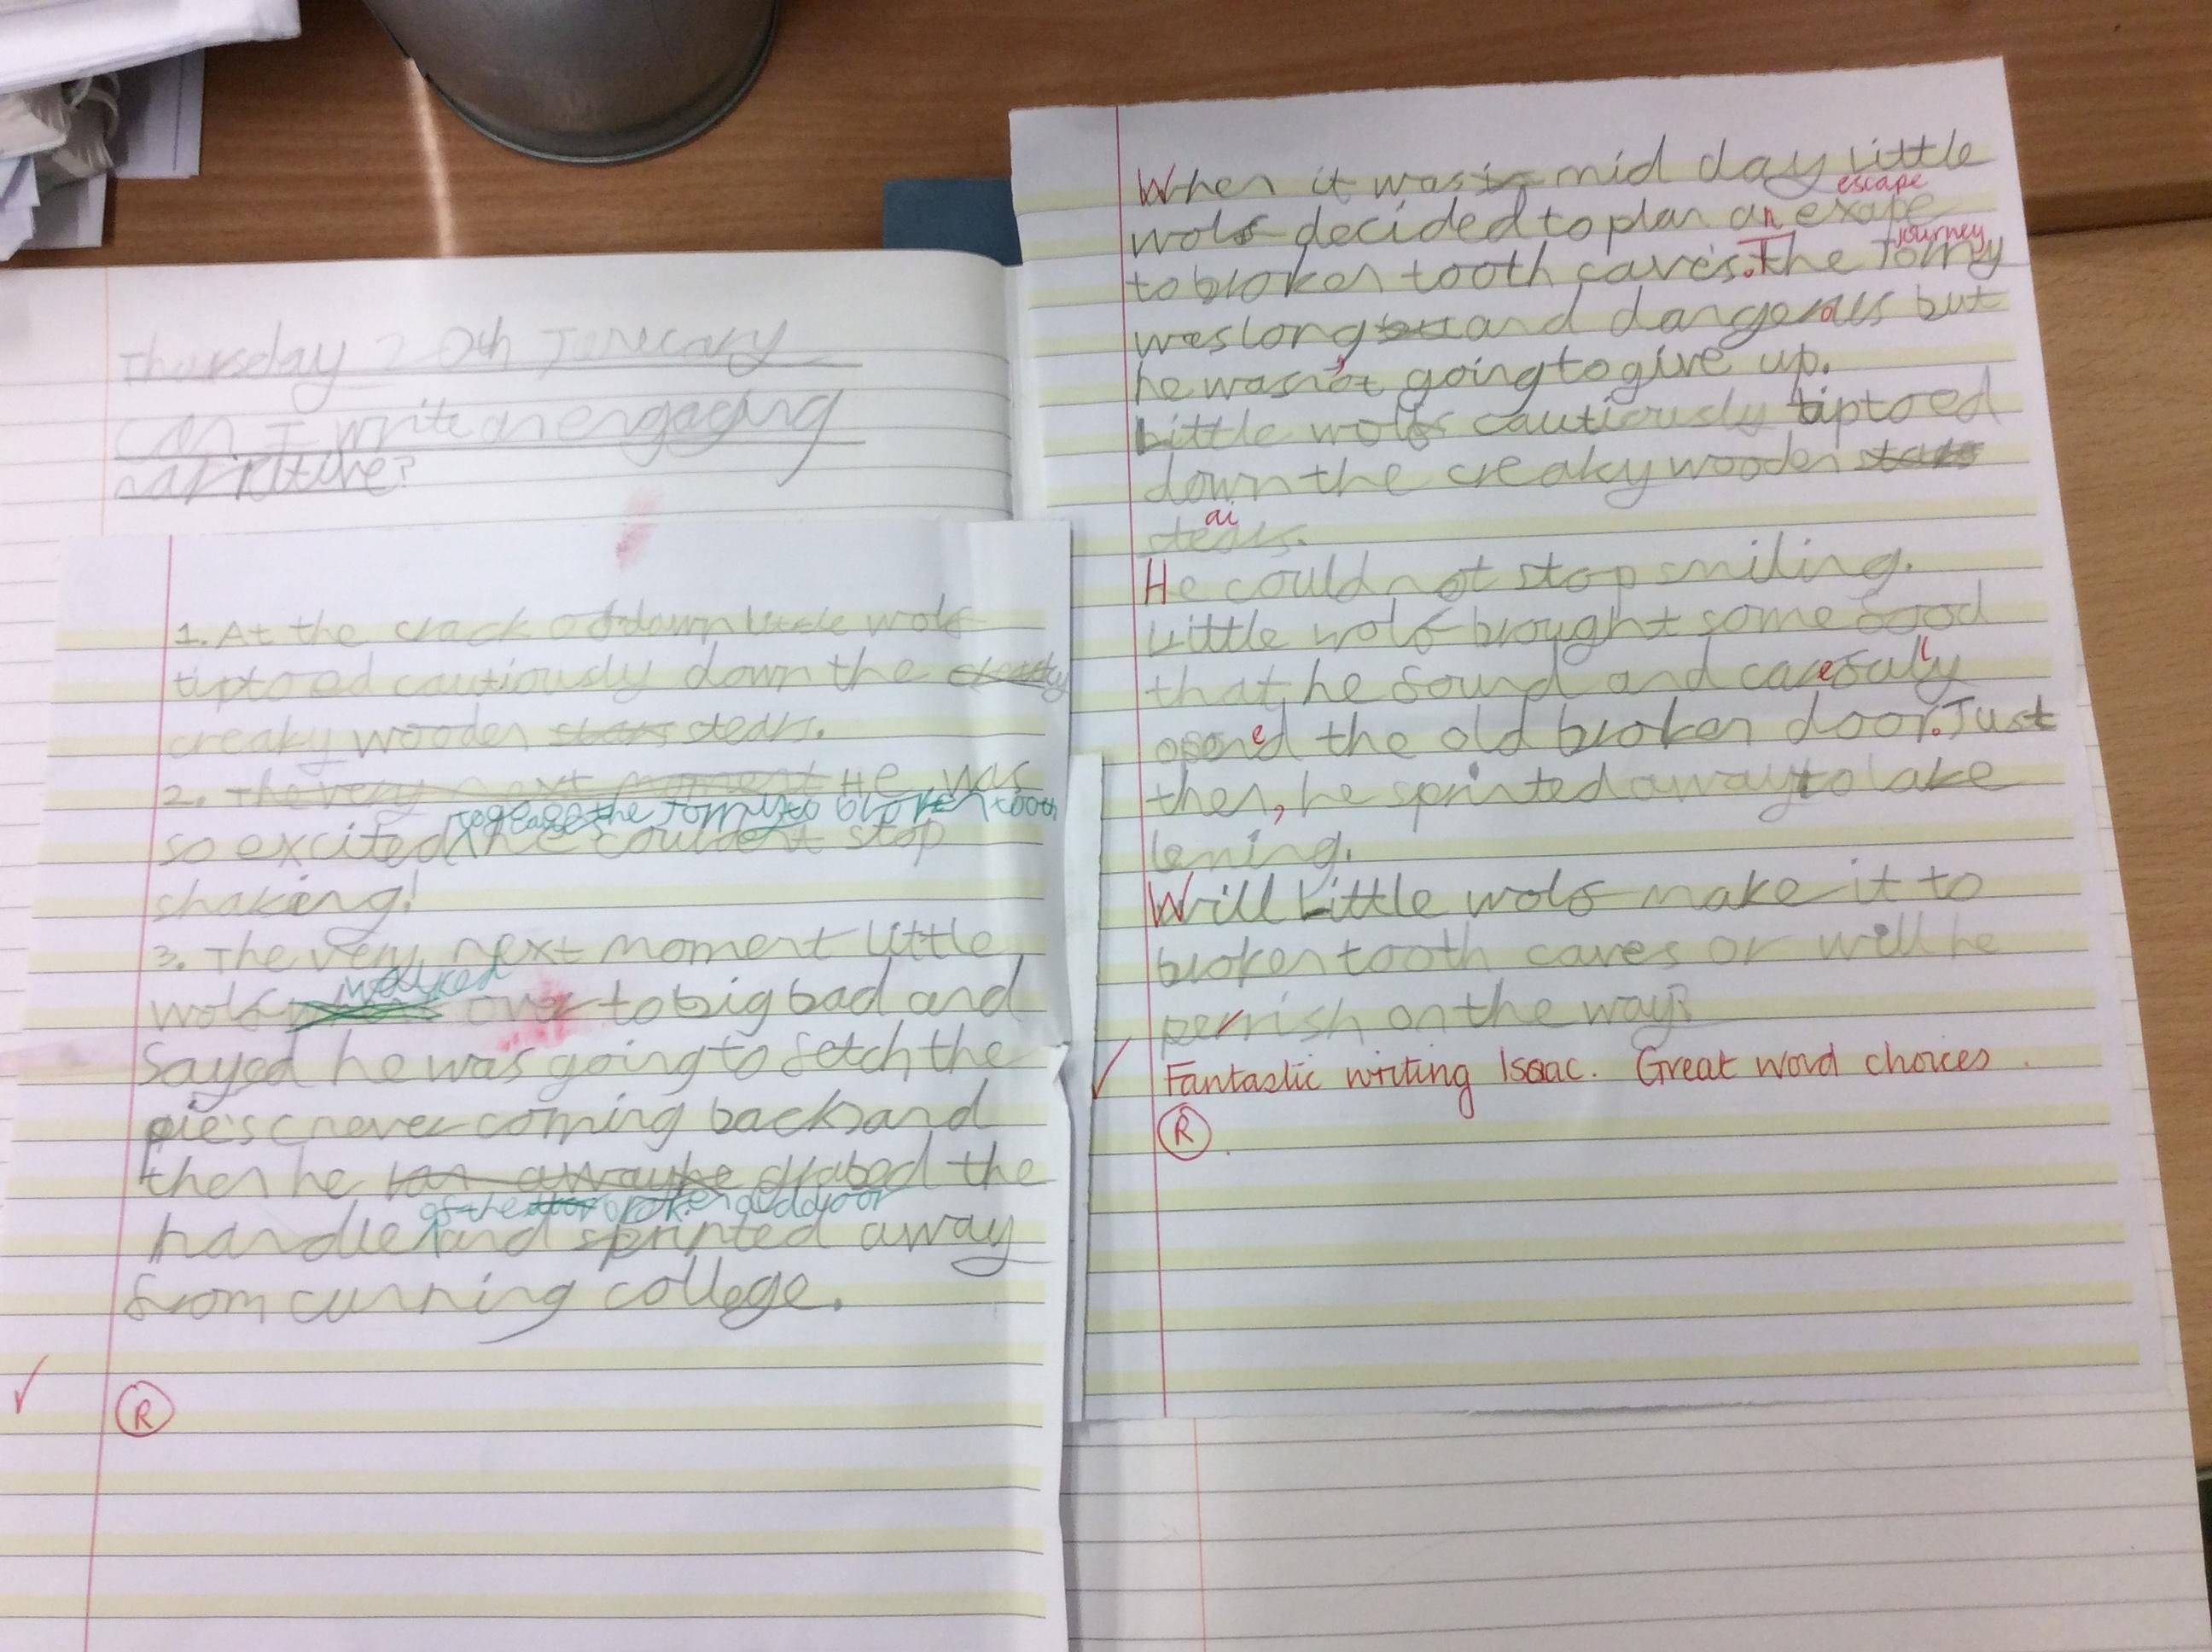 Thursday 20th Jenecary
Can I write an engaging
narritive?
1. At the crack of dawn little wolf
tiptoed cautiously down the creaky
creaky wooden stars stears.
2. The very next moment He was
to the Jorny to broken tooth
so excited he couldent stop
shaking!
3. The very next moment little
walked
wolf over to big bad and
Sayed he was going to fetch the
never coming back and
then he ran away he grabed the
of the door broken old door
handle and sprinted away
from cunning college.
R
When it was in mid day Little
escape
wolf decided to plan an exape
journey
to broken tooth caves. The Jorny
was long but and dangerous but
he wasn't going to give up.
Little wolf cautiously tiptoed
down the creaky wooden stars
ai
stears.
He could not stop smiling.
Little wolf brought some food
that he found and carefully
opened the old broken door. Just
then, he sprinted away to lake
lening.
Will Little wolf make it to
broken tooth caves or will he
perrish on the way?
Fantastic writing Isaac. Great word choices.
R